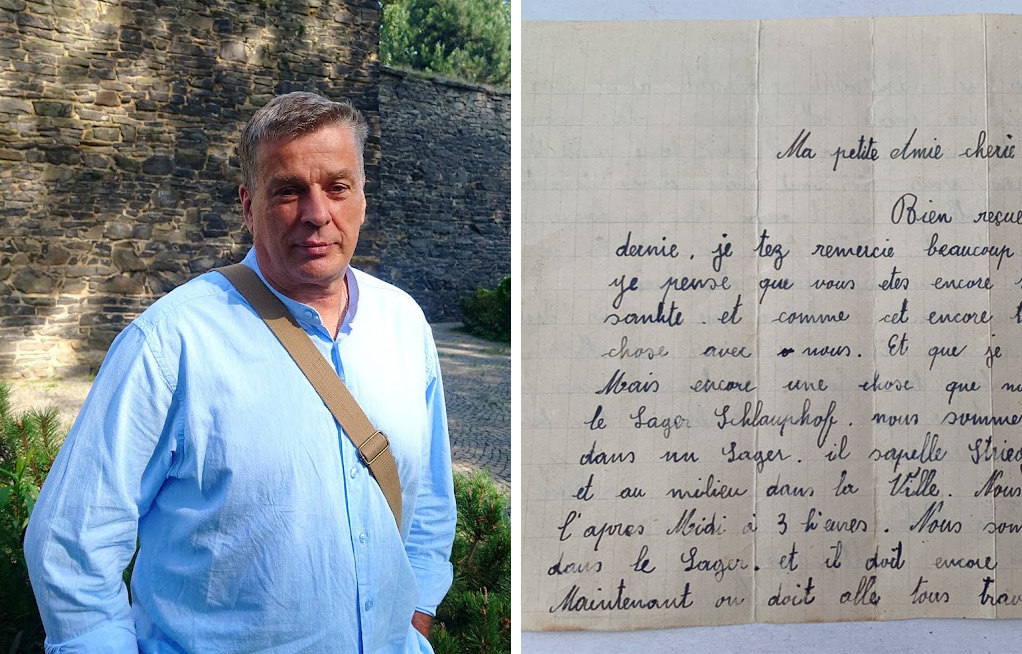 Ma petite Amie cherie
Bien reçue
dernie, je tez remercie beaucoup
ye pense que vous etes encore
santte. et comme cet encore
chose avec nous. Et que je
Mais encore une chose que
le Lager Schlauphof. nous somme
dans un Lager. il sapelle Stried
et au milieu dans la Ville. Nous
l'apres Midi à 3 heures. Nous som
dans le Lager. et il doit encore
Maintenant on doit alle tous trav